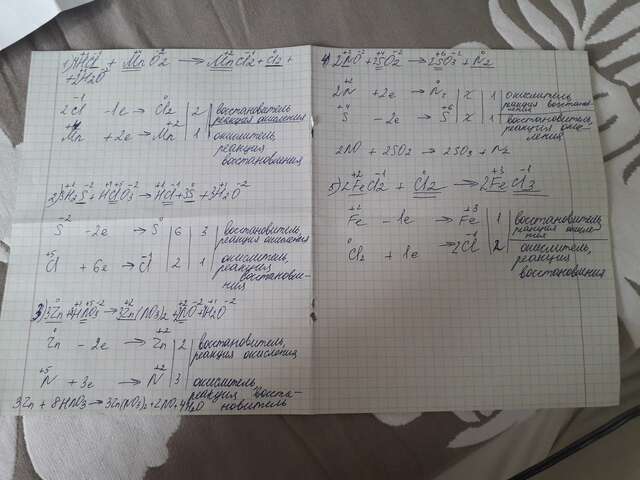 1) 4HCl + MnO2 → MnCl2 + Cl2 +
+2H2O
2Cl -1e → Cl2 | 2 | восстановитель
реакция окисления
Mn +2e → Mn | 1 | окислитель,
реакция
восстановления
2) 3H2S + HClO3 → HCl + 3S + 3H2O
S -2e → S | 6 | 3 | восстановитель,
реакция окисления
Cl +6e → Cl | 2 | 1 | окислитель,
реакция
восстановле-
ния
3) 3Zn + 8HNO3 → 3Zn(NO3)2 + 2NO + 4H2O
Zn -2e → Zn | 2 | восстановитель,
реакция окисления
N +3e → N | 3 | окислитель,
реакция восста-
новитель
3Zn + 8HNO3 → 3Zn(NO3)2 + 2NO + 4H2O
4) 2NO + 2SO2 → 2SO3 + N2
2N +2e → N2 | x | 1 | окислитель,
реакция восстанов-
ления
S -2e → S | x | 1 | восстановитель,
реакция окис-
ления
2NO + 2SO2 → 2SO3 + N2
5) 2FeCl2 + Cl2 → 2FeCl3
Fe -1e → Fe | 1 | восстановитель,
реакция окисле-
ния
Cl2 +1e → 2Cl | 2 | окислитель,
реакция
восстановления